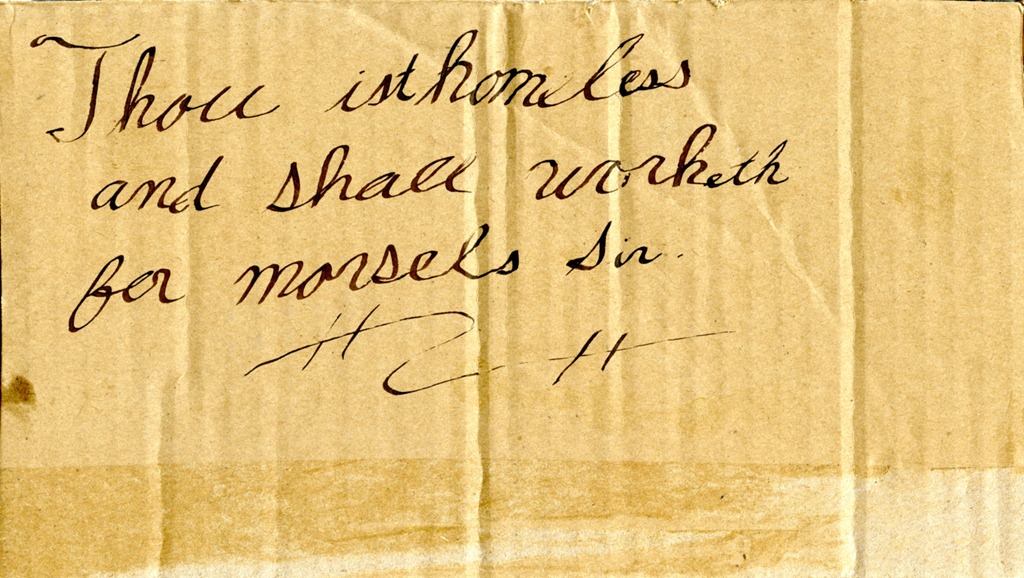 Thou ist homeless
and shall worketh
for morsels sir.